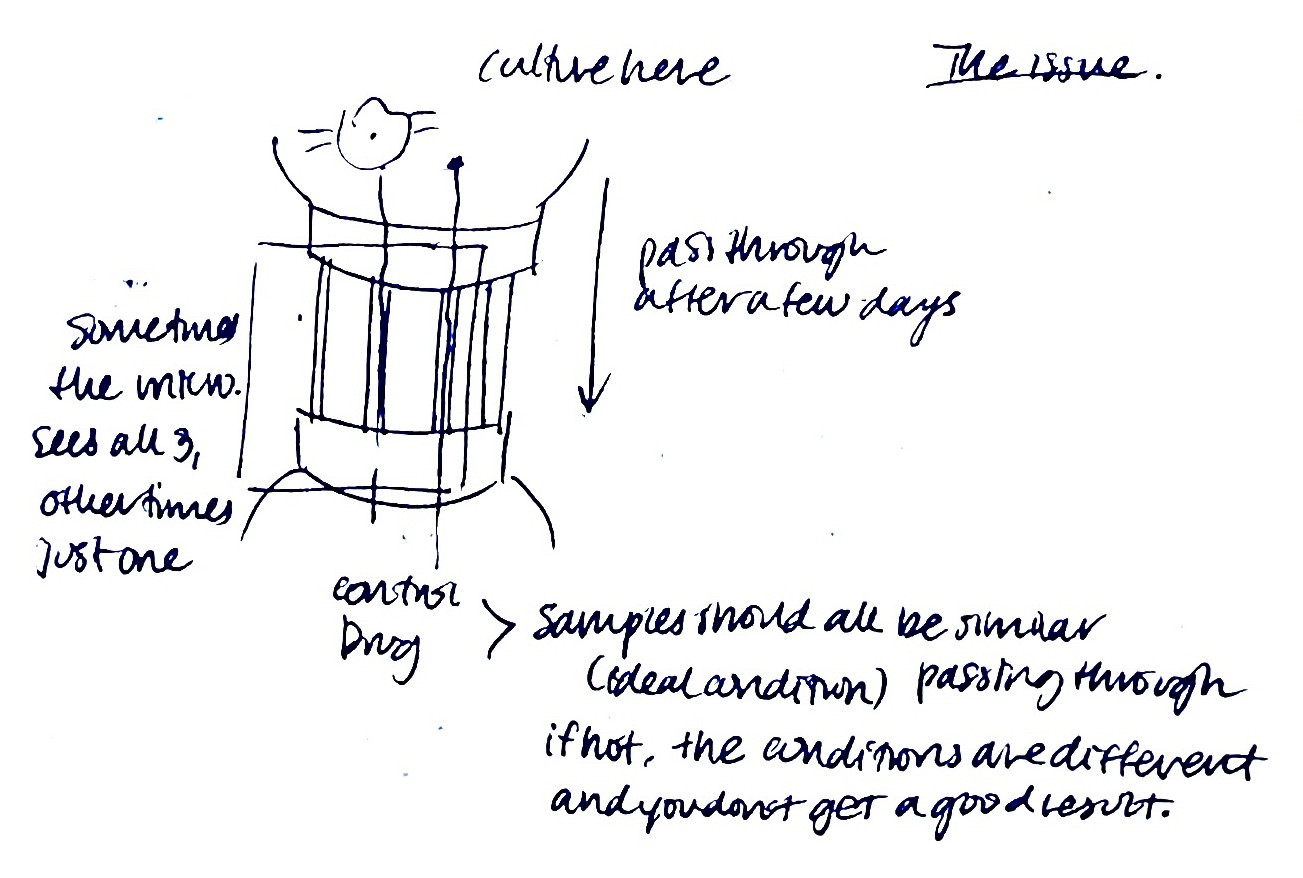 culture here
The issue.
pass through
after a few days
Sometimes
the micro.
sees all 3,
other times
just one
control
Drug > samples should all be similar
(ideal condition) passing through
if not, the conditions are different
and you donot get a good result.